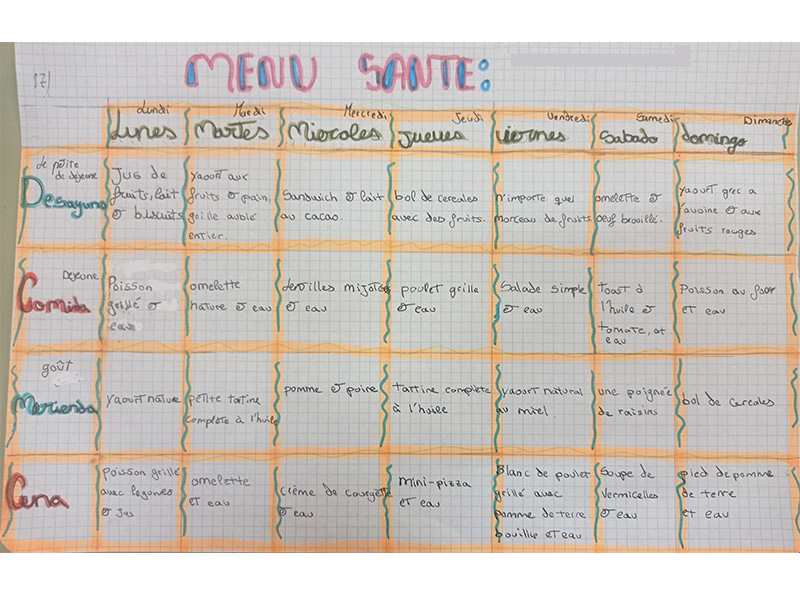 MENU SANTE:
37/
Lundi Mardi Mercredi Jeudi Vendredi Samedi Dimanche
Lunes Martes Miercoles Jueves Viernes Sabado domingo
de petite
de dejeune
Desayuno
Jus de
fruits, lait
& biscuits
yaourt aux
fruits & pain,
grille auble
entier.
Sandwich & lait
au cacao.
bol de cereales
avec des fruits.
n'importe quel
morceau de fruits
omelette &
oeuf brouillé.
yaourt grec a
l'avoine & aux
fruits rouges
Dejeune
Comida
Poisson
grillé &
eau
omelette
nature & eau
mijotées
& eau
poulet grille
& eau
Salade simple
& eau
Toast à
l'huile &
tomate, et
eau
Poisson au four
et eau
goût
Merienda
yaourt nature
petite tartine
complete à l'huile
pomme & poire
tartine complète
à l'huile
yaourt natural
au miel.
une poignée
de raisins
bol de cereales
Cena
poisson grillé
avec legumes
& jus
omelette
et eau
crème de courgette
& eau
mini-pizza
et eau
Blanc de poulet
grillé avec
pomme de terre
bouillie et eau
Soupe de
vermicelles
& eau
pied de pomme
de terre
et eau